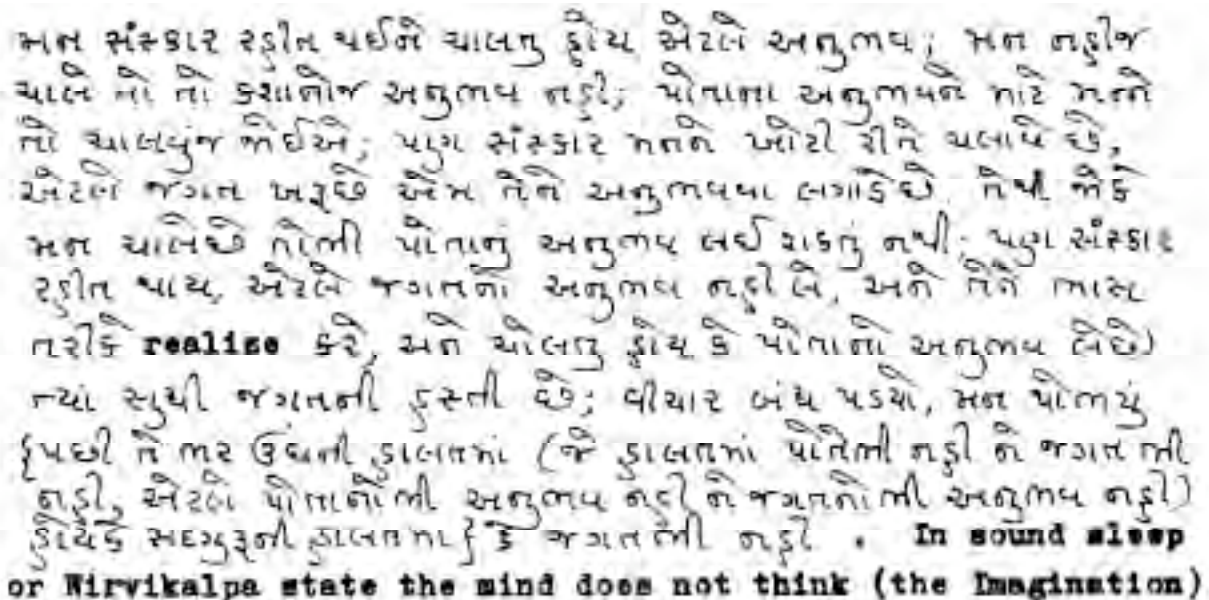 મન સંસ્કાર રહીત થઈને ચાલતુ હોય એટલે અનુભવ; મન નહીજ
ચાલે તો તો કશાનોજ અનુભવ નહી; પોતાના અનુભવને માટે મનને
તો ચાલવુંજ જોઈએ; પણ સંસ્કાર મનને ખોટી રીતે ચલાવે છે,
એટલે જગત ખરૂછે એમ તેને અનુભવવા લગાડેછે તેથી જોકે
મન ચાલેછે તોભી પોતાનુ અનુભવ લઈ શકતું નથી; પણ સંસ્કાર
રહીત થાય, એટલે જગતનો અનુભવ નહી લે, અને તેને ભાસ
તરીકે realise કરે, અને ચાલતુ હોય કે પોતાનો અનુભવ લેછે)
ત્યાં સુધી જગતની હસ્તી છે; વીચાર બંધ પડયો, મન થોભયું
{પછી તે ભર ઉંઘની હાલતમાં (જે હાલતમાં પોતેભી નહી ને જગત ભી
નહી, એટલે પોતાનોભી અનુભવ નહી ને જગતનોભી અનુભવ નહી)
હોયકે સદગુરૂની હાલતમા} કે જગતભી નહી . In sound sleep
or Nirvikalpa state the mind does not think (the Imagination)